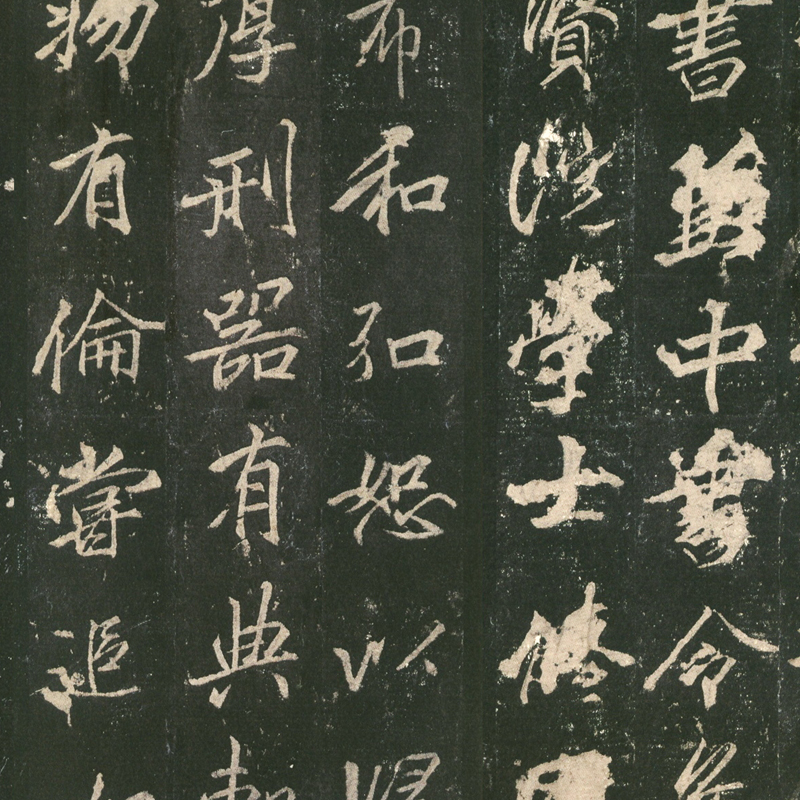 書兼中書令
賢院學士修國
布和弘恕以
刑器有典
物有倫嘗追